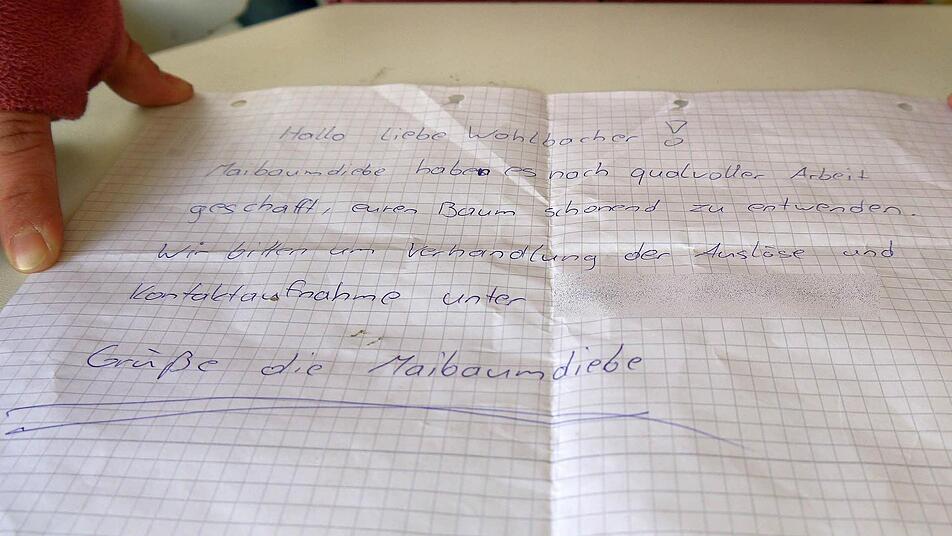 Hallo liebe Wohlbacher!
Maibaumdiebe haben es nach qualvoller Arbeit
geschafft, euren Baum schonend zu entwenden.
Wir bitten um Verhandlung der Auslöse und
Kontaktaufnahme unter
Grüße die Maibaumdiebe